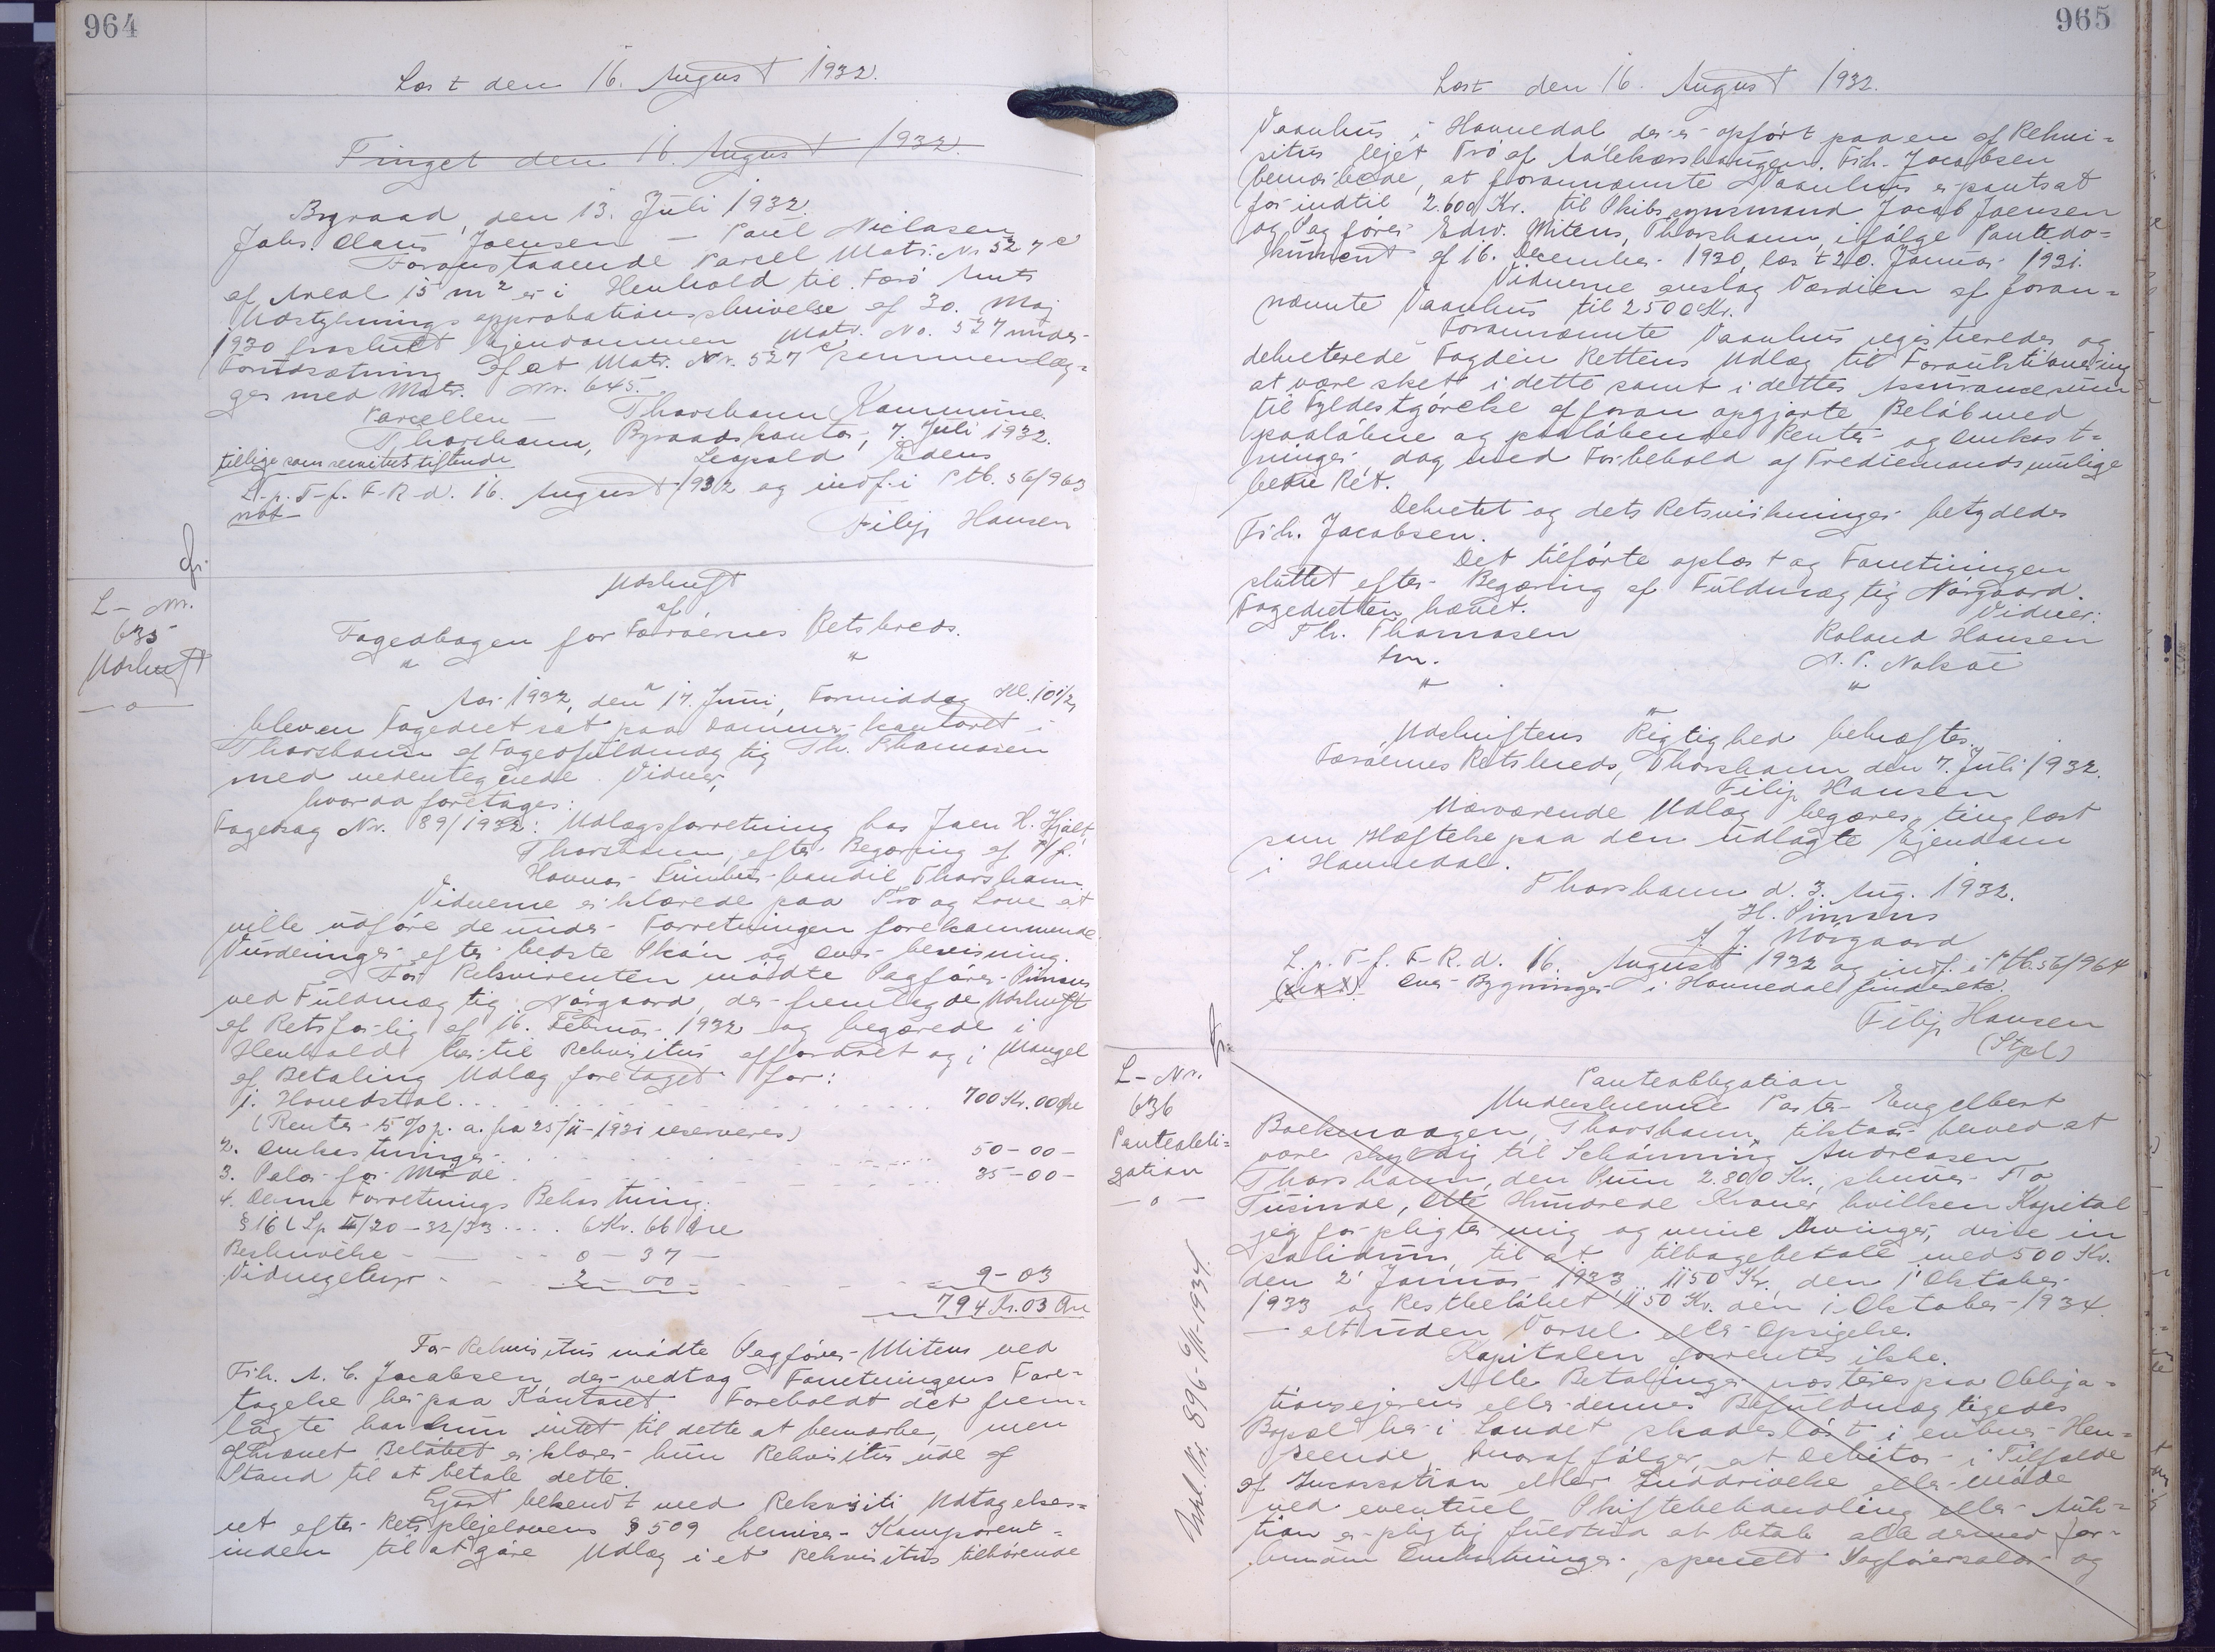 964
Læst den 16. August 1932.
Tinget den 16. August 1932.
Byraad, den 13. Juli 1932.
Johs. Olaus Joensen — Paul Niclasen
Foranstaaende Parcel Matr. Nr. 527 c
af Areal 15 m² er i Henhold til Færø Amts
Udstyknings approbationsskrivelse af 30. Maj
1930 fraskilt Ejendommen Matr. No. 527 under
Forudsætning af at Matr. Nr. 527 c sammenlæg-
ges med Matr. Nr. 645.
Parcellen — Thorshavn Kommune.
Thorshavn, Byraadskontor, 7. Juli 1932.
tillige som
Leopold
L. p. T. f. F. R. d. 16. August 1932 og indf. i P.tb. 56/963
Filip Hansen
L- Nr.
635
Udskrift
— o —
Udskrift
af
Fogedbogen for Færøernes Retskreds.
" "
Aar 1932, den 17. Juni, Formiddag Kl. 10½,
blev en Fogedret sat paa Dommerkontoret i
Thorshavn af Fogedfuldmægtig Th. Thomasen
med undertegnede Vidner,
hvorda foretages:
Fogedsag Nr. 89/1932: Udlægsforretning hos Joen H. Hjalt,
Thorshavn, efter Begæring af A/f.
Havnar Timburhandil Thorshavn.
Vidnerne erklærede paa Tro og Love at
ville udføre de under Forretningen forekommende
Vurderinger efter bedste Skøn og Overbevisning.
For Rekvirenten mødte Sagfører Simsus
ved Fuldmægtig Nørgaard, der fremlagde Udskrift
af Retsforlig af 16. Februar 1932 og begærede i
Henhold hertil Rekvisitus affordret og i Mangel
af Betaling Udlæg foretaget for:
1. Hovedstol . . . 700 Kr. 00 Øre
(Renter 5 % p. a. fra 25/11-1931 reserveres)
2. Omkostninger . . . 50-00-
3. Salær for Møde . . . 35-00-
4. Denne Forretnings Bekostning.
§ 16 L Sp II/20-32/33 . . . . 6 Kr. 66 Øre
Beskrivelse - — - - 0 - 37 -
Vidnegebyr - - - 2 - 00 - - - - 9-03
794 Kr. 03 Øre
For Rekvisitus mødte Sagfører Mitens ved
Frk. A. C. Jacobsen, der vedtog Forretningens Fore-
tagelse her paa Kontoret. Foreholdt det frem-
lagte har hun intet til dette at bemærke, men
afkrævet Beløbet erklærer hun Rekvisitus ude af
Stand til at betale dette.
Gjort bekendt med Rekvisiti Udtagelses-
ret efter Retsplejelovens § 509 henviser Komparent-
inden til at gøre Udlæg i et Rekvisitus tilhørende
965
Læst den 16. August 1932.
Vaanhus i Havnedal der er opført paa en af Rekvi-
situs lejet Trø af Aalekærshaugen. Frk. Jacobsen
bemærkede, at forannævnte Vaanhus er pantsat
for indtil 2.600 Kr. til Skibssynsmand Jacob Joensen
og Sagfører Edw. Mitens, Thorshavn, ifølge Pantedo-
kument af 16. December 1930, læst 20. Januar 1931.
Vidnerne anslog Værdien af foran-
nævnte Vaanhus til 2500 Kr.
Forannævnte Vaanhus registreredes og
dekreterede Fogden Rettens Udlæg til Forauktionering
at være sket i dette samt i dettes Assurancesum
til Fyldestgørelse af foran opgjorte Beløb med
paaløbne og paaløbende Renter og Omkost-
ninger dog med Forbehold af Trediemands mulige
bedre Ret.
Dekretet og dets Retsvirkninger betydedes
Frk. Jacobsen.
Det tilførte oplæst og Forretningen
sluttet efter Begæring af Fuldmægtig Nørgaard.
Fogedretten hævet.
Vidner:
Th. Thomasen Roland Hansen
fm. N. P. Nolsøe
" "
Udskriftens Rigtighed bekræftes.
Færøernes Retskreds, Thorshavn, den 7. Juli 1932.
Filip Hansen
Nærværende Udlæg begæres tinglæst
som Hæftelse paa den udlagte Ejendom
i Havnedal.
Thorshavn d. 3. Aug. 1932.
H. Simsus
J. Nørgaard
L. p. T. f. F. R. d. 16. August 1932 og indf. i P.tb. 56/964
Over Bygninger i Havnedal findes
Filip Hansen
(Stpl)
L- Nr.
636
Panteobli-
gation
— o —
Panteobligation
Underskrevne Pastor Engelbert
Bækenaagen, Thorshavn, tilstaar herved at
være skyldig til Schønning Andreasen
Thorshavn, den Sum 2.800 Kr., skriver To
Tusinde, Otte Hundrede Kroner, hvilken Kapital
jeg forpligter mig og mine Arvinger, disse in
solidum til at tilbagebetale med 500 Kr.
den 2' Januar 1933, 1150 Kr. den 1' Oktober
1933 og Restbeløbet 1150 Kr. den 1' Oktober 1934
— alt uden Varsel eller Opsigelse.
Kapitalen forrentes ikke.
Alle Betalinger præsteres paa Obliga-
tionsejerens eller dennes Befuldmægtigedes
Bopæl her i Landet skadesløst i enhver Hen-
seende, hvoraf følger, at Debitor i Tilfælde
af Incassation eller Inddrivelse eller Møde
ved eventuel Skiftebehandling eller Auk-
tion er pligtig fuldtud at betale alle dermed for-
bundne Omkostninger, specielt Sagførersalær og